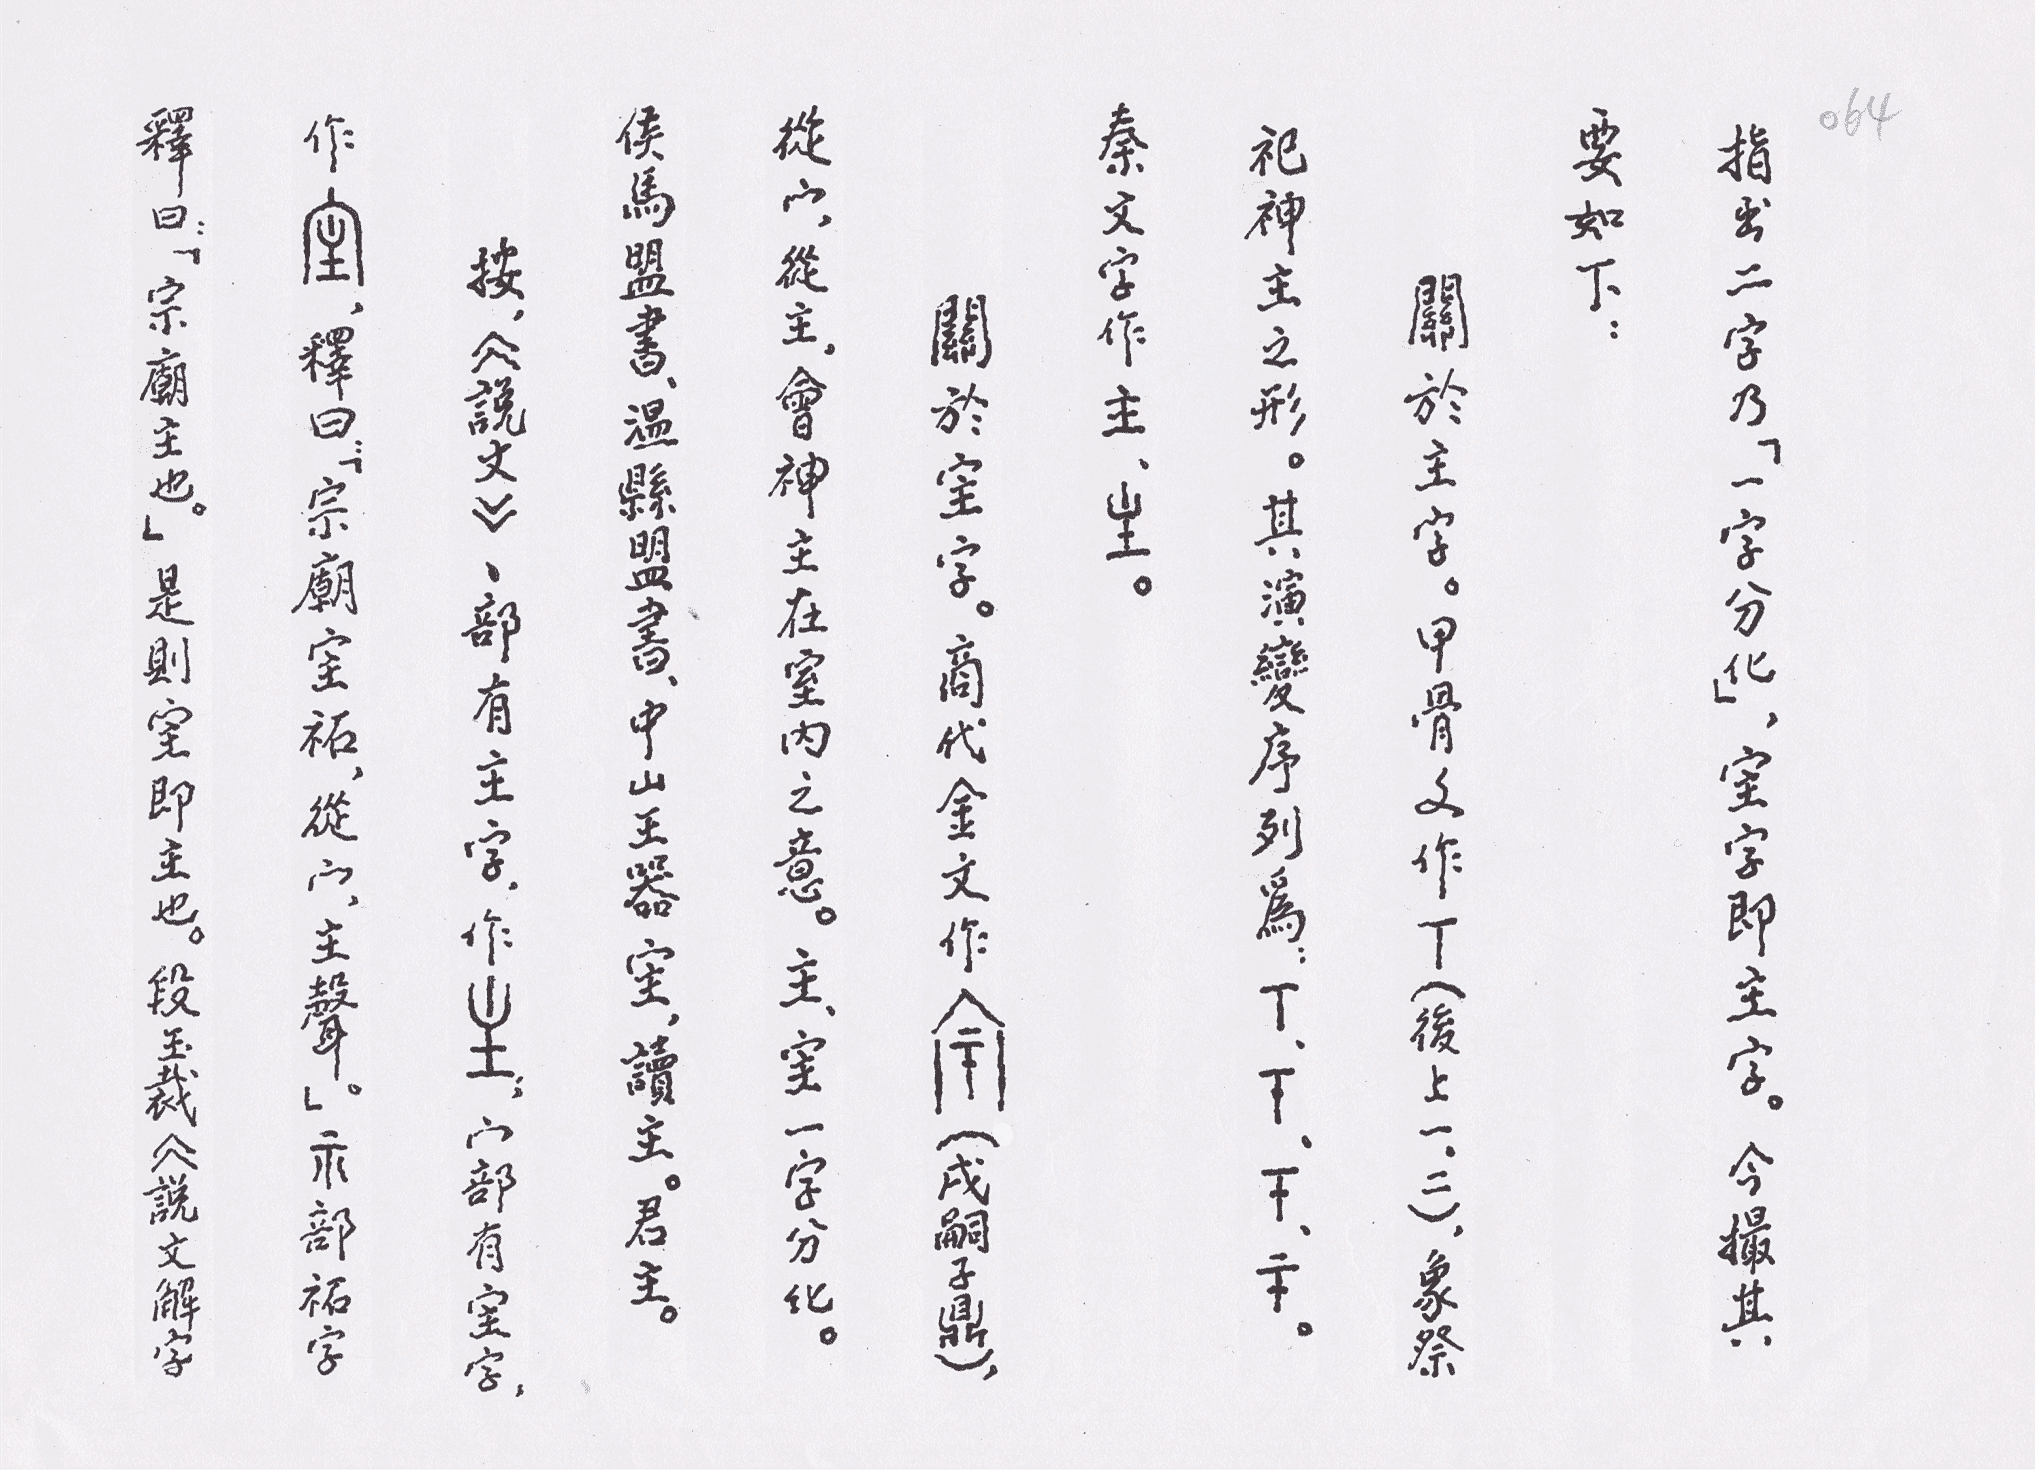 064
指出二字乃「一字分化」，宔字即主字。今撮其
要如下：
關於主字。甲骨文作丅（後上一、二），象祭
祀神主之形。其演變序列爲：丅、丅、干、示。
秦文字作主、𡉚。
關於宔字。商代金文作（戍嗣子鼎），
從宀，從主，會神主在室内之意。主、宔一字分化。
侯馬盟書、溫縣盟書、中山王器宔，讀主。君主。
按，《説文》丶部有主字，作；宀部有宔字，
作，釋曰：「宗廟宔祏，從宀，主聲」。示部祏字
釋曰：「宗廟主也。」是則宔即主也。段玉裁《説文解字